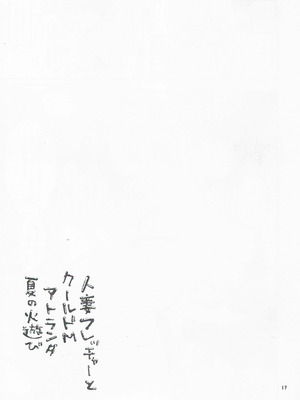 人妻フレッチャーと
クールドM
アトランダ
夏の火遊び
17